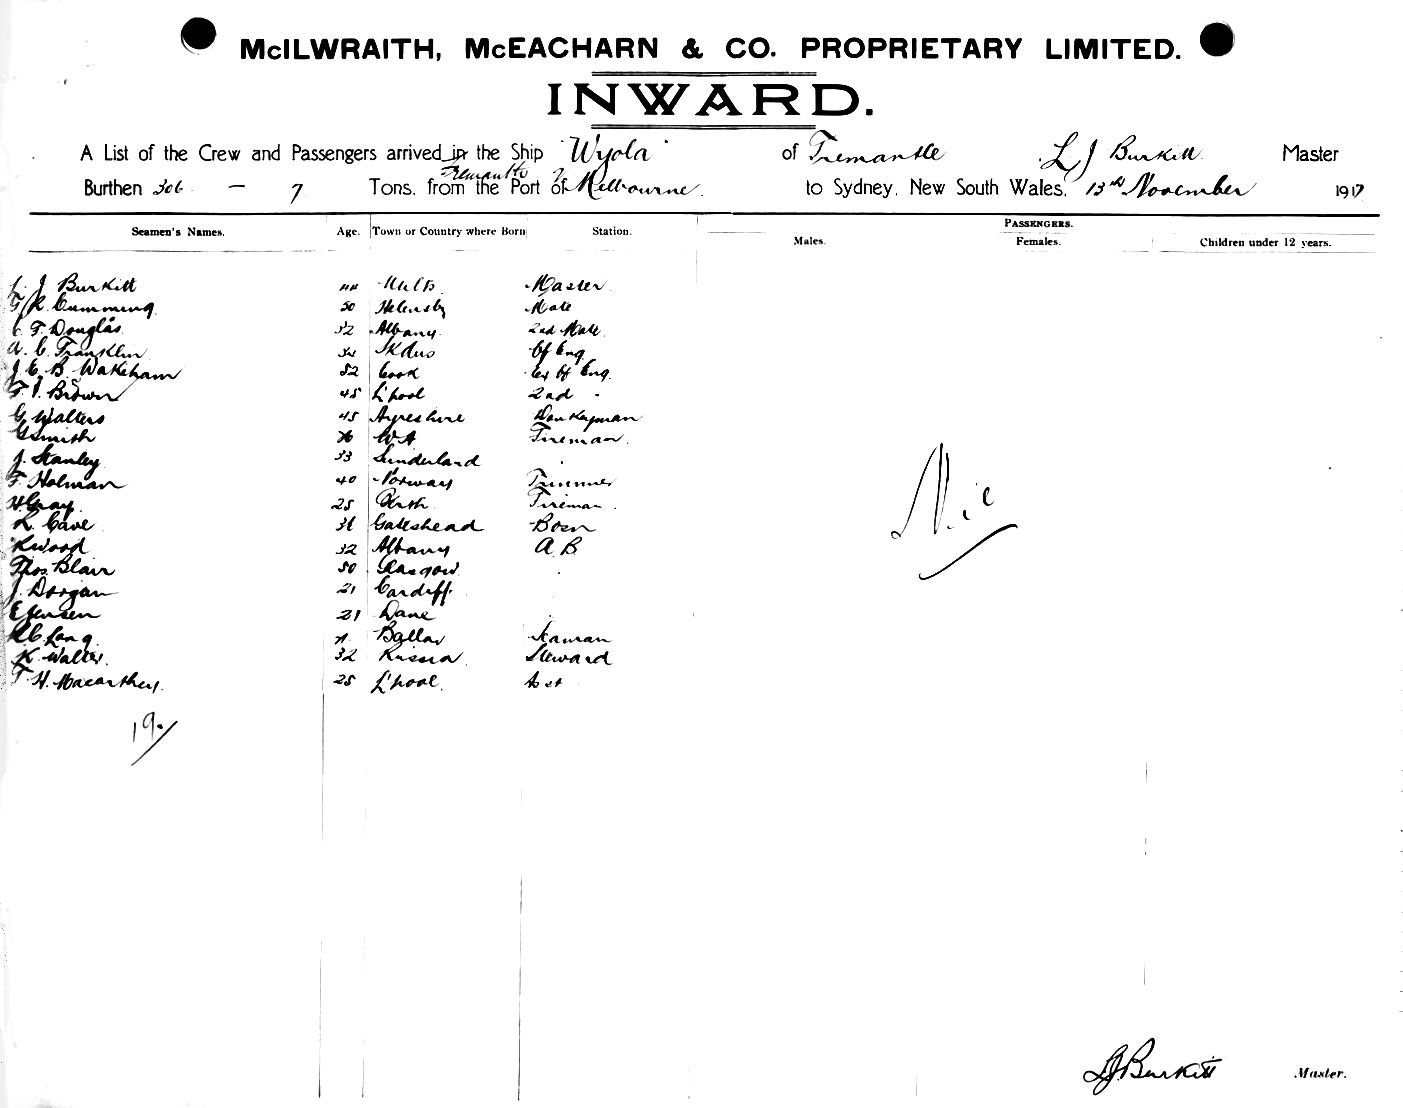 McILWRAITH, McEACHARN & CO. PROPRIETARY LIMITED.
INWARD.
A List of the Crew and Passengers arrived in the Ship "Wyola" of Fremantle L J Burkitt Master
Burthen 306 - 7 Tons, from the Port of Fremantle Melbourne to Sydney, New South Wales, 13th November 1917
PASSENGERS.
Seamen's Names. Age. Town or Country where Born Station. Males. Females. Children under 12 years.
L J Burkitt 44 Master
Cumming 50 Helensby Mate
C F Douglas 32 Albany 2nd Mate
A. C. Franklin Cf Eng
J C B Wakeham 52 Cook Cf Eng.
F. J. Brown 45 L'pool 2nd "
G Walters 45 Ayreshire Donkeyman
G Smith W A Fireman.
J. Stanley 33 Sunderland "
F Holman 40 Norway Trimmer
H Gray 25 Perth Fireman
L. Cave 31 Gateshead Bosn
K Wood 32 Albany A B
Thos. Blair 50 Glasgow "
J. Dorgan 21 Cardiff "
E Jensen 21 Dane "
Lang Seaman
K Walter 32 Russia Steward
T. H. Macarthey. 25 L'pool. Asst
Nil
19
L J Burkitt Master.